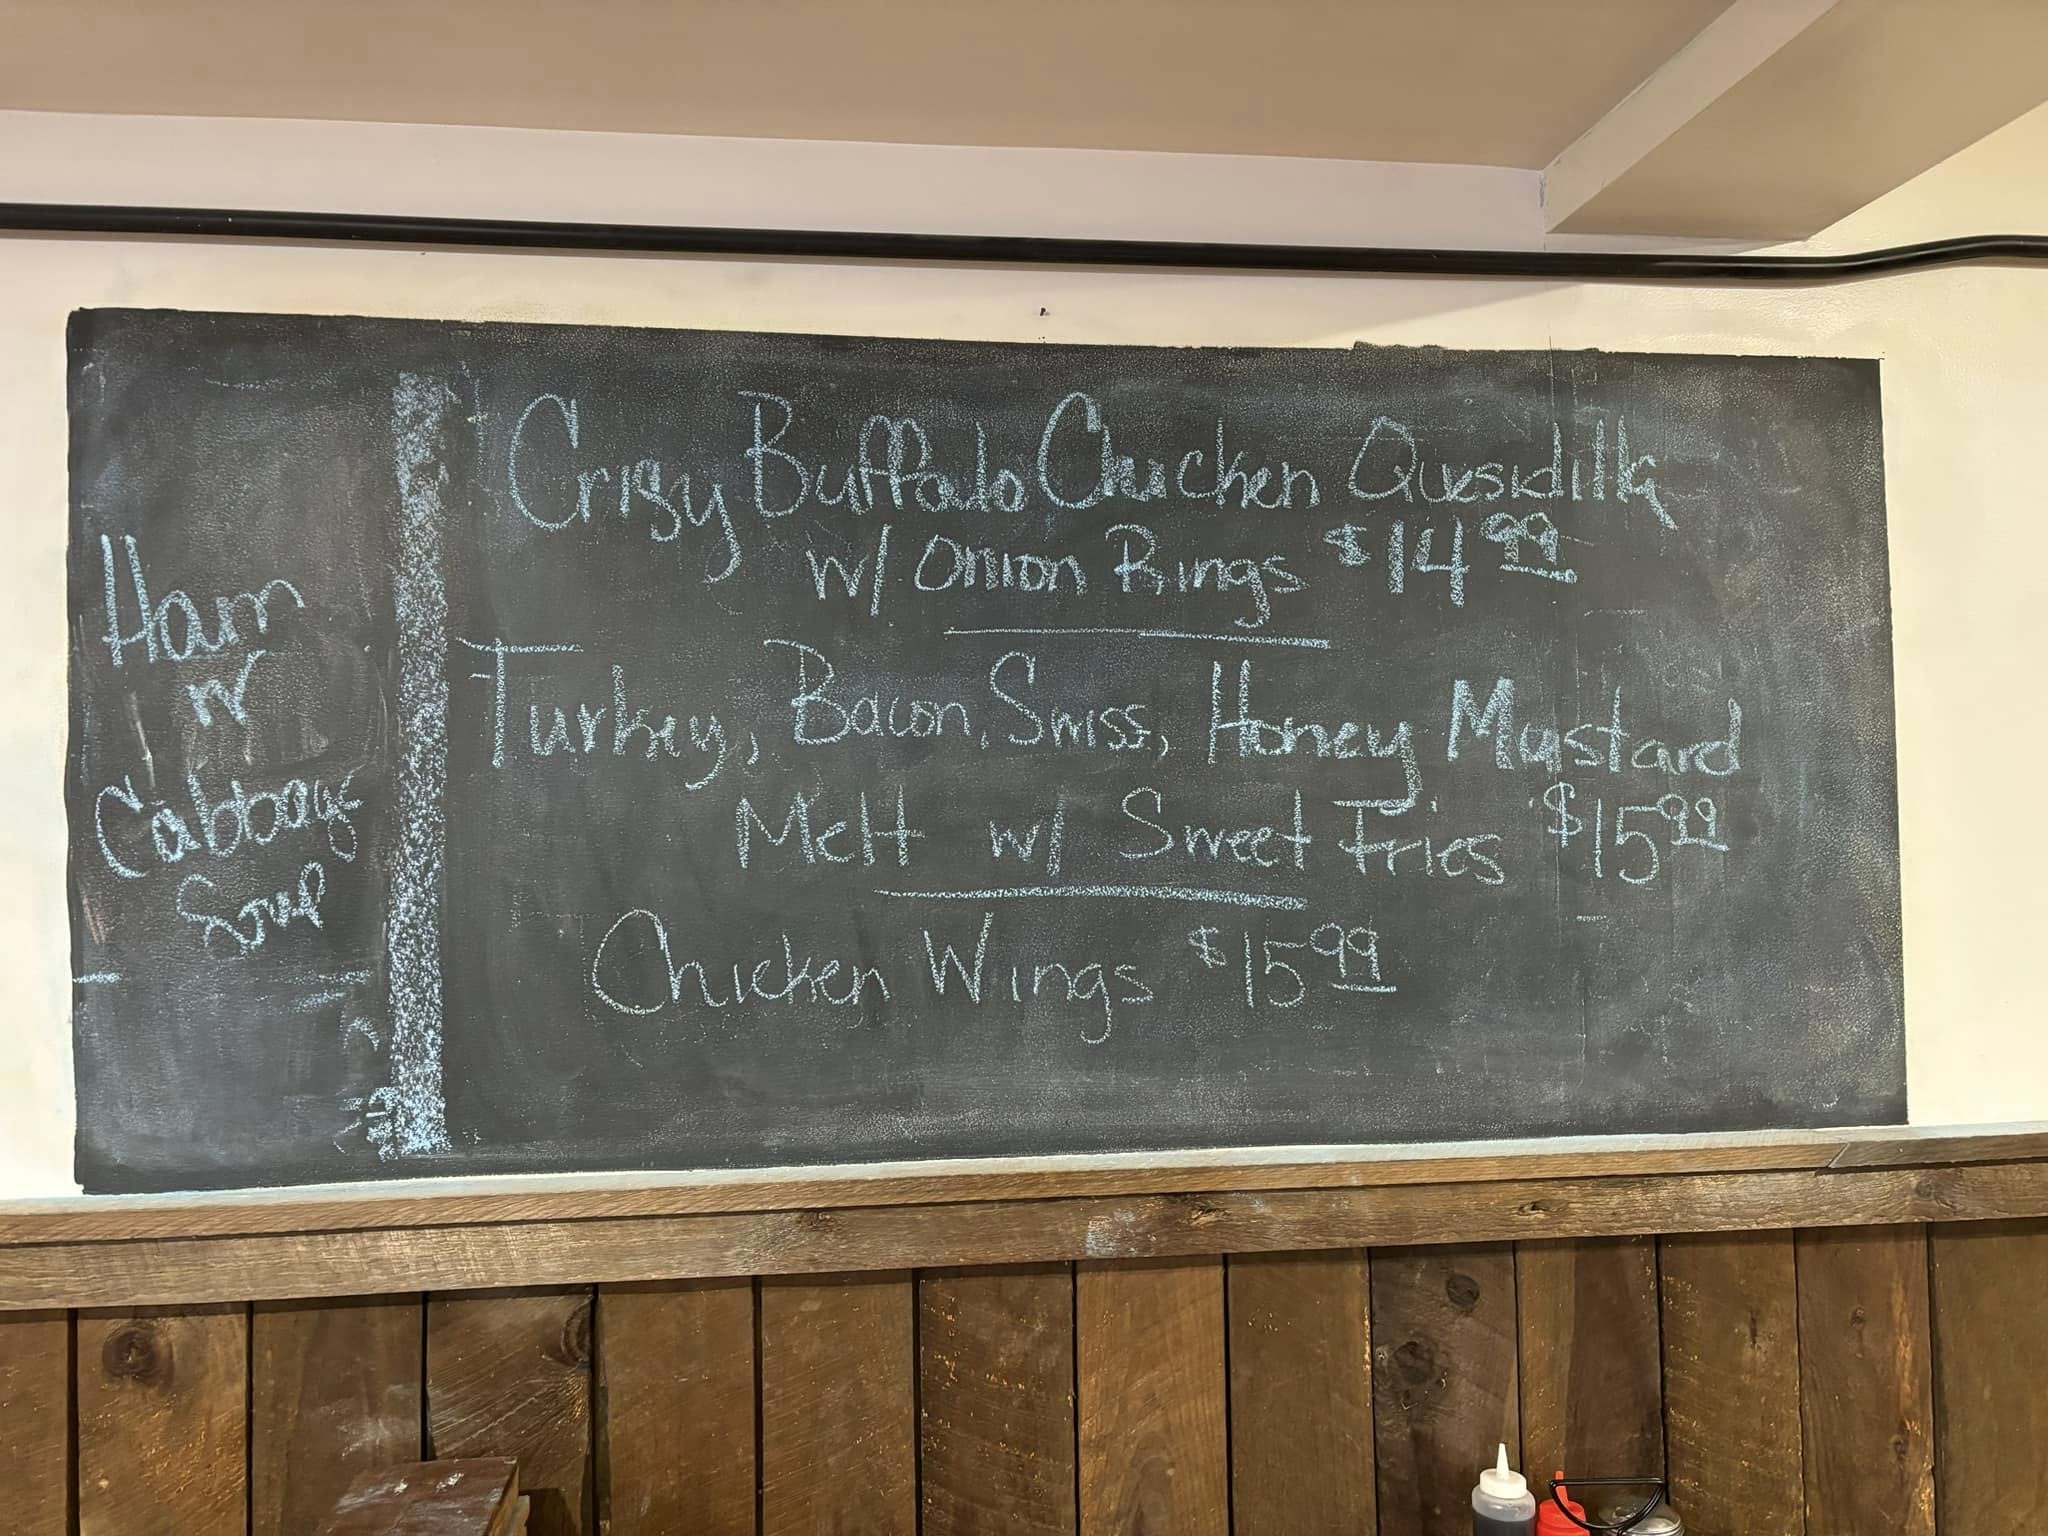 Ham
n'
Cabbage
Soup
Crispy Buffalo Chicken Quesidilla
w/ Onion Rings $14.99
Turkey, Bacon, Swiss, Honey Mustard
Melt w/ Sweet Fries $15.99
Chicken Wings $15.99